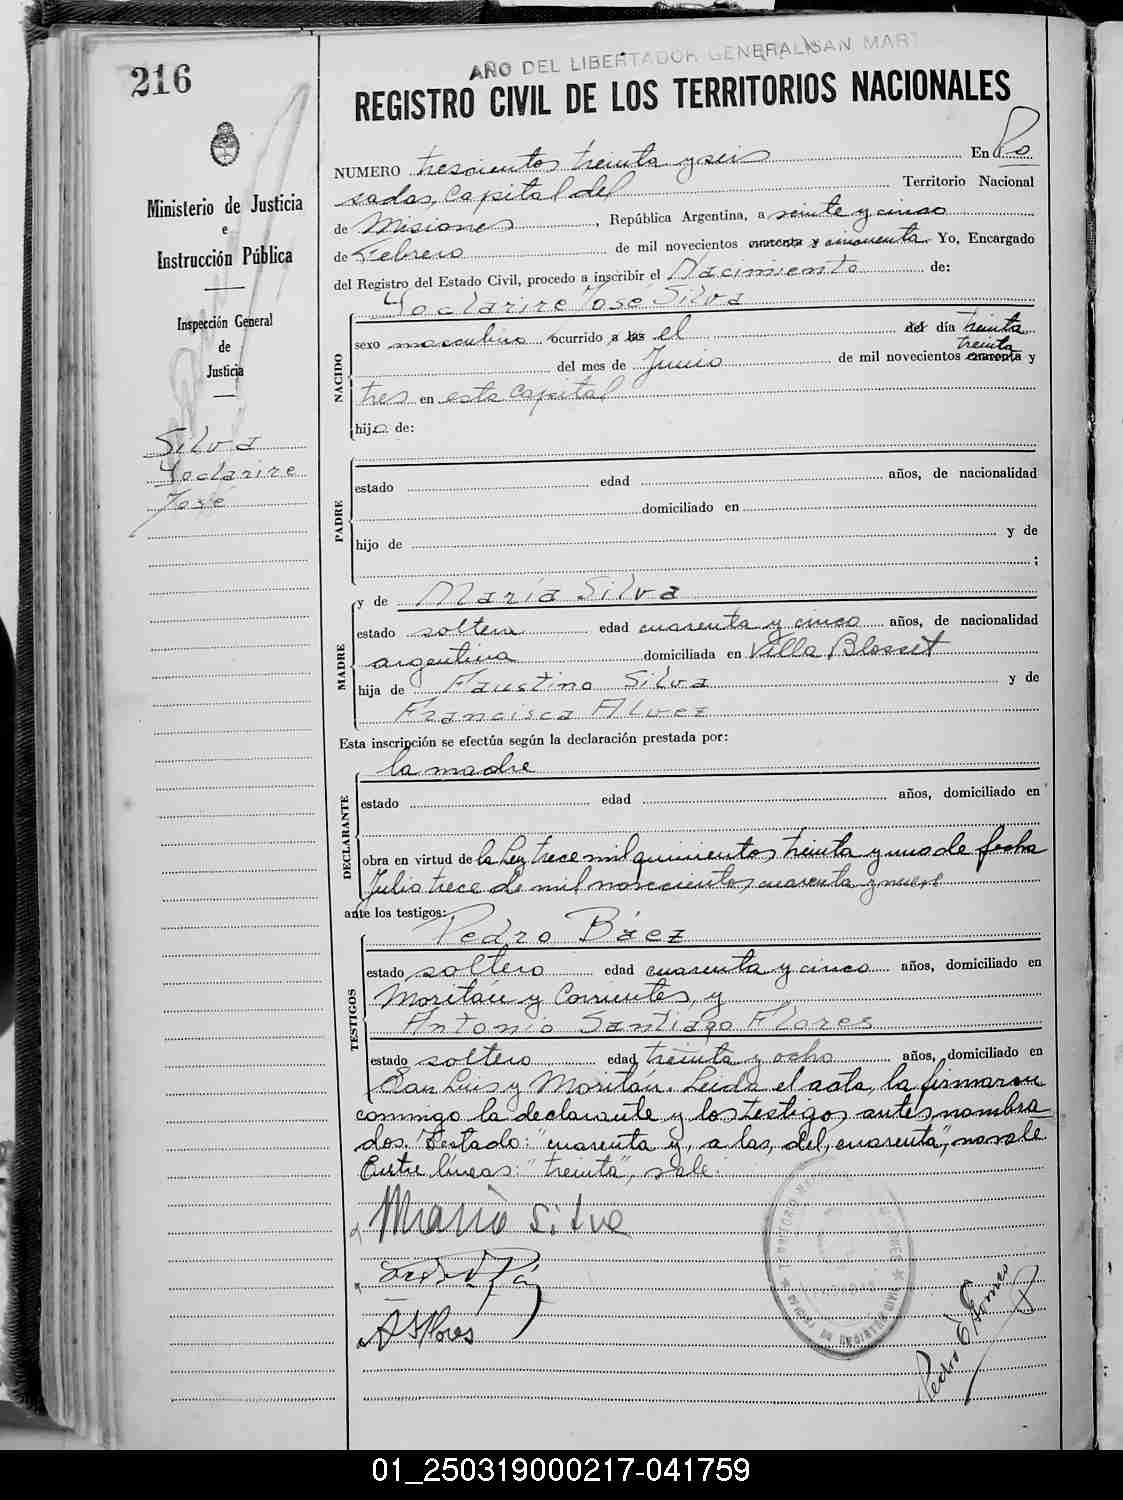 216
AÑO DEL LIBERTADOR GENERAL SAN MART
REGISTRO CIVIL DE LOS TERRITORIOS NACIONALES
Ministerio de Justicia
e
Instrucción Pública
Inspección General
de
Justicia
Silva
Yoclarire
José
NUMERO trescientos treinta y seis En Po
sadas, Capital del Territorio Nacional
de Misiones, República Argentina, a veinte y cinco
de Febrero de mil novecientos cuarenta y cincuenta Yo, Encargado
del Registro del Estado Civil, procedo a inscribir el Nacimiento de:
Yoclarire José Silva
NACIDO
sexo masculino ocurrido a las el del día treinta
treinta
del mes de Junio de mil novecientos cuarenta y
tres en esta capital
hijo de:
PADRE
estado edad años, de nacionalidad
domiciliado en
hijo de y de
;
MADRE
y de María Silva
estado soltera edad cuarenta y cinco años, de nacionalidad
argentina domiciliada en Villa Blosset
hija de Faustino Silva y de
Francisca Alvez
Esta inscripción se efectúa según la declaración prestada por:
la madre
DECLARANTE
estado edad años, domiciliado en
obra en virtud de la Ley trece mil quinientos treinta y uno de fecha
Julio trece de mil novecientos cuarenta y nueve
ante los testigos:
Pedro Báez
TESTIGOS
estado soltero edad cuarenta y cinco años, domiciliado en
Moritán y Corrientes, y
Antonio Santiago Flores
estado soltero edad treinta y ocho años, domiciliado en
San Luis y Moritán. Leida el acta, la firmaron
conmigo la declarante y los testigos antes nombra
dos. Testado: "cuarenta y, a las, del, cuarenta", no vale.
Entre líneas: "treinta", vale.
María Silva
A S Flores
Pedro E Gomez
01_250319000217-041759